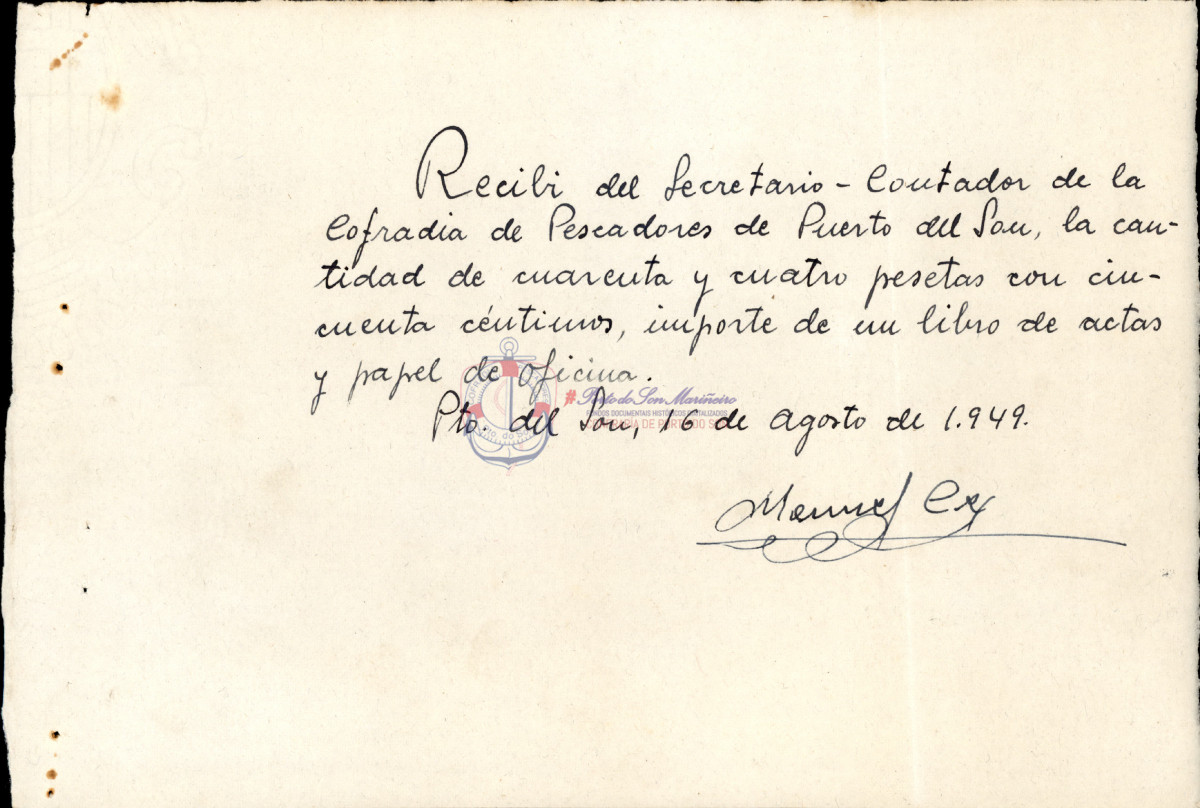 Recibi del Secretario-Contador de la
Cofradia de Pescadores de Puerto del Son, la can-
tidad de cuarenta y cuatro pesetas con cin-
cuenta céntimos, importe de un libro de actas
y papel de oficina.
#Porto do Son Mariñeiro
FONDOS DOCUMENTAIS HISTÓRICOS DIGITALIZADOS
CONFRARÍA DE PORTO DO SON
Pto. del Son, 16 de agosto de 1.949.
Manuel